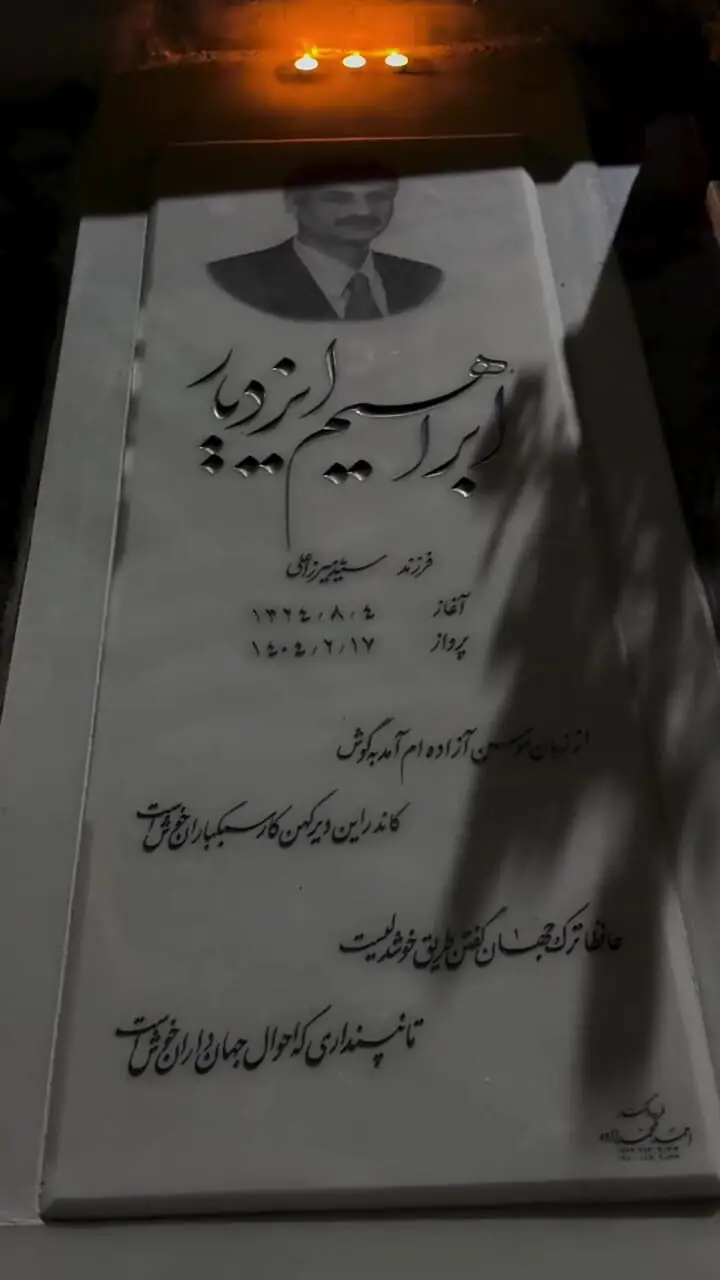 ابراهیم ایزدیار
فرزند سید میرزاعلی
آغاز ۱۳۲۴/۸/۴
پرواز ۱۴۰۴/۶/۱۷
از زبان سوسن آزاده ام آمد به گوش
کاندر این دیر کهن کار سبکباران خوش است
حافظا ترک جهان گفتن طریق خوشدلیست
تا نپنداری که احوال جهان داران خوش است